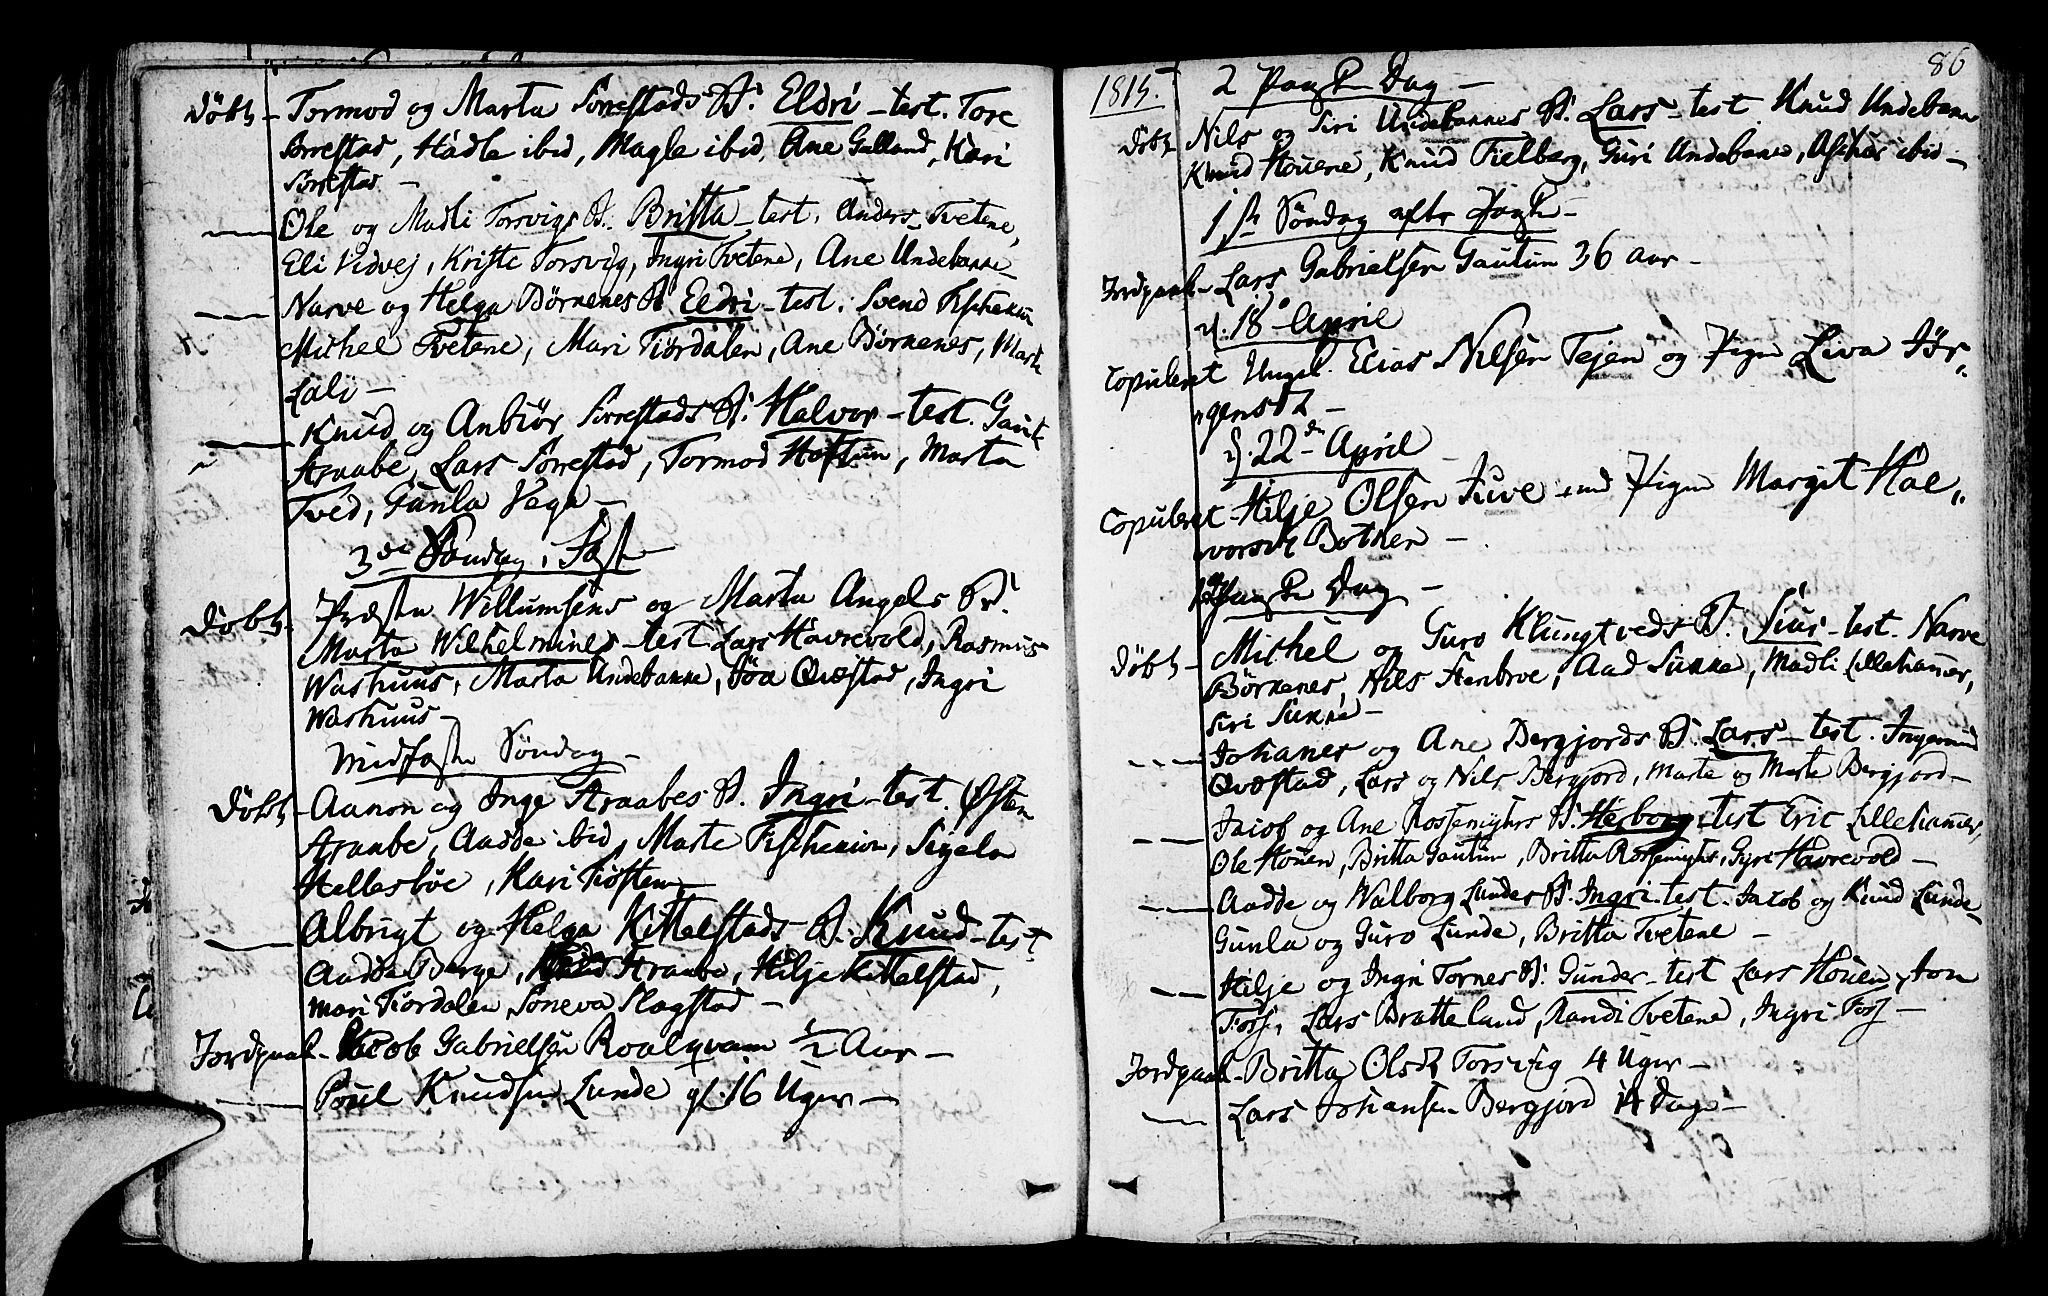 Döbt - Tormod og Marta Sørrestads B. Eldri - test. Tore
Sørrestad, Hadle ibid, Magle ibid, Ane Galland, Kari
Sørrestad -
Ole og Madli Torsvigs B. Britta - test. Anders Tvetene,
Eli Vidvej, Kriste Torsvig, Ingri Tvetene, Ane Undebanne -
Narve og Helga Börnenes B. Eldri - test. Svend
Michel Tvetene, Mari Tiördalen, Ane Börnenes, Marte
Lali -
Knud og Anbiör Sørrestads B. Halvor - test. Gaute
Araabe, Lars Sørrestad, Tormod Hoftun, Marta
Tved, Gunla Vega -
3de Söndag i Fast
Döbt - Præsten Willumsens og Marta Angels B.
Marta Wilhelmine - test Lars Havrevold, Rasmus
Washuus, Marta Undebanne, Jöa Qvæstad, Ingri
Washuus -
Midfaste Söndag -
Döbt - Aanon og Inge Araabes B. Ingri - test. Østen
Araabe, Aadde ibid, Marte
Hellesböe, Kari
Albrigt og Helga Kittelstads B. Knud - test
Aadde Berge, Araabe, Hilje Kittelstad,
Mari Tiördalen, Soneva Slagstad -
Jordpaak - Jacob Gabrielsen Roalqvam 1/2 Aar -
Poul Knudsen Lunde gl. 16 Uger -
86
1815. 2 Paaske Dag -
Döbt Nils og Siri Undebannes B. Lars - test Knud Undebane
Knud Houene, Knud Fielberg, Guri Undebane, ibid -
1ste Söndag efter Paaske -
Jordpaak - Lars Gabrielsen Gautun 36 aar -
d. 18 April
Copuleret Ungk. Elias Nilsen Tejen og Pigen Liva Jör„
„gensd. -
d. 22de April -
Copuleret - Hilje Olsen Juve med Pigen Margit Hal„
„vorsd. Botnen -
Dag -
Döbt - Michel og Guro Klungtveds B. Siur - test. Narve
Börnenes, Nils Stenbroe, Aad Sukka, Madli Lillehamer,
Siri Sukka -
Johanes og Ane Bergjords B. Lars - test. Ingemund
Qvæstad, Lars og Nils Bergjord, Marta og Marta Bergjord -
Jacob og Ane B. Herborg - test Eric Lillehamer,
Ole Houen, Britta Gautun, Britta Gyri Havrevold -
Aadde og Walborg Lundes B. Ingri - test. Jacob og Knud Lunde -
Gunla og Guro Lunde, Britta Tvetene -
Hilje og Ingri Tornes B. Gunder - test Lars Houen, Jon
Foss, Lars Bratteland, Randi Tvetene, Ingri Foss -
Jordpaak - Britta Olsd. Torsvig 4 Uger -
Lars Johansen Bergjord 14 Dage -